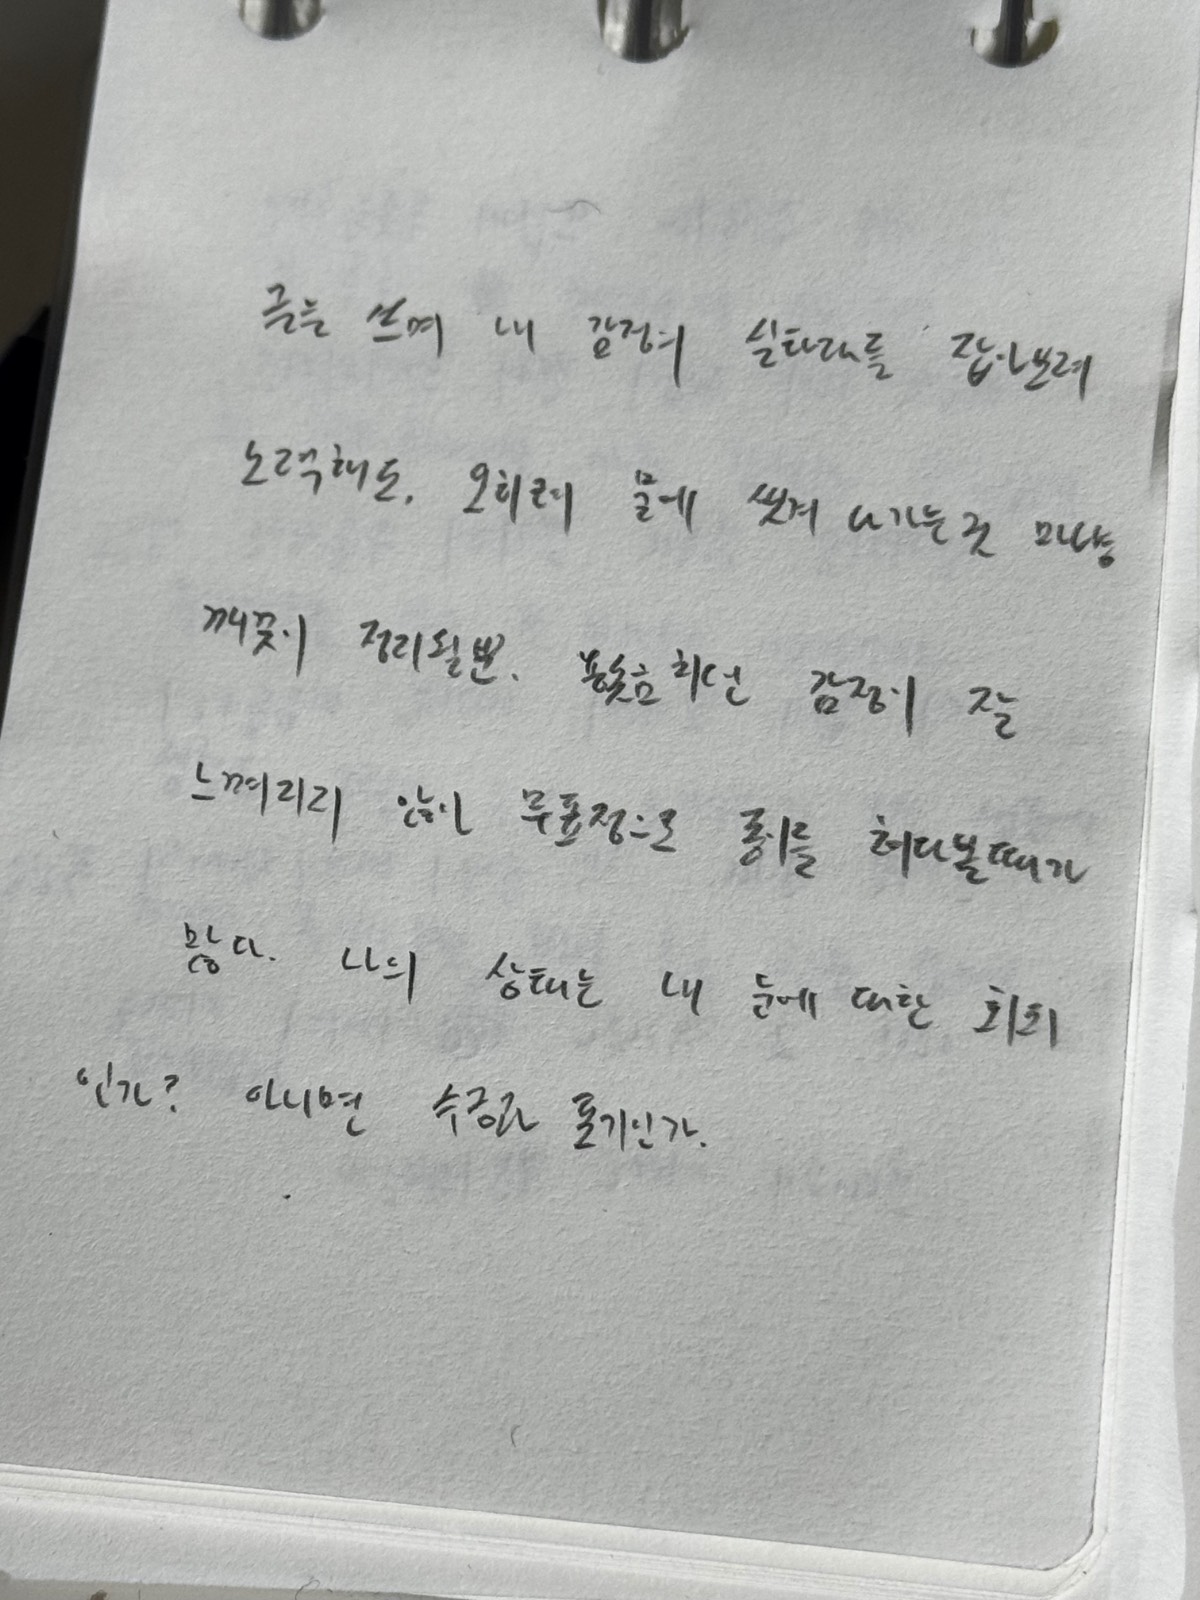 글을 쓰며 내 감정의 실타래를 잡아보려
노력해도, 오히려 물에 씻겨 나가는 것 마냥
깨끗이 정리될뿐. 흥했던 감정이 잘
느껴지지 않아 무표정으로 종이를 쳐다볼때가
많다. 나의 상태는 내 눈에 대한 회피
인가? 아니면 수긍과 포기인가.